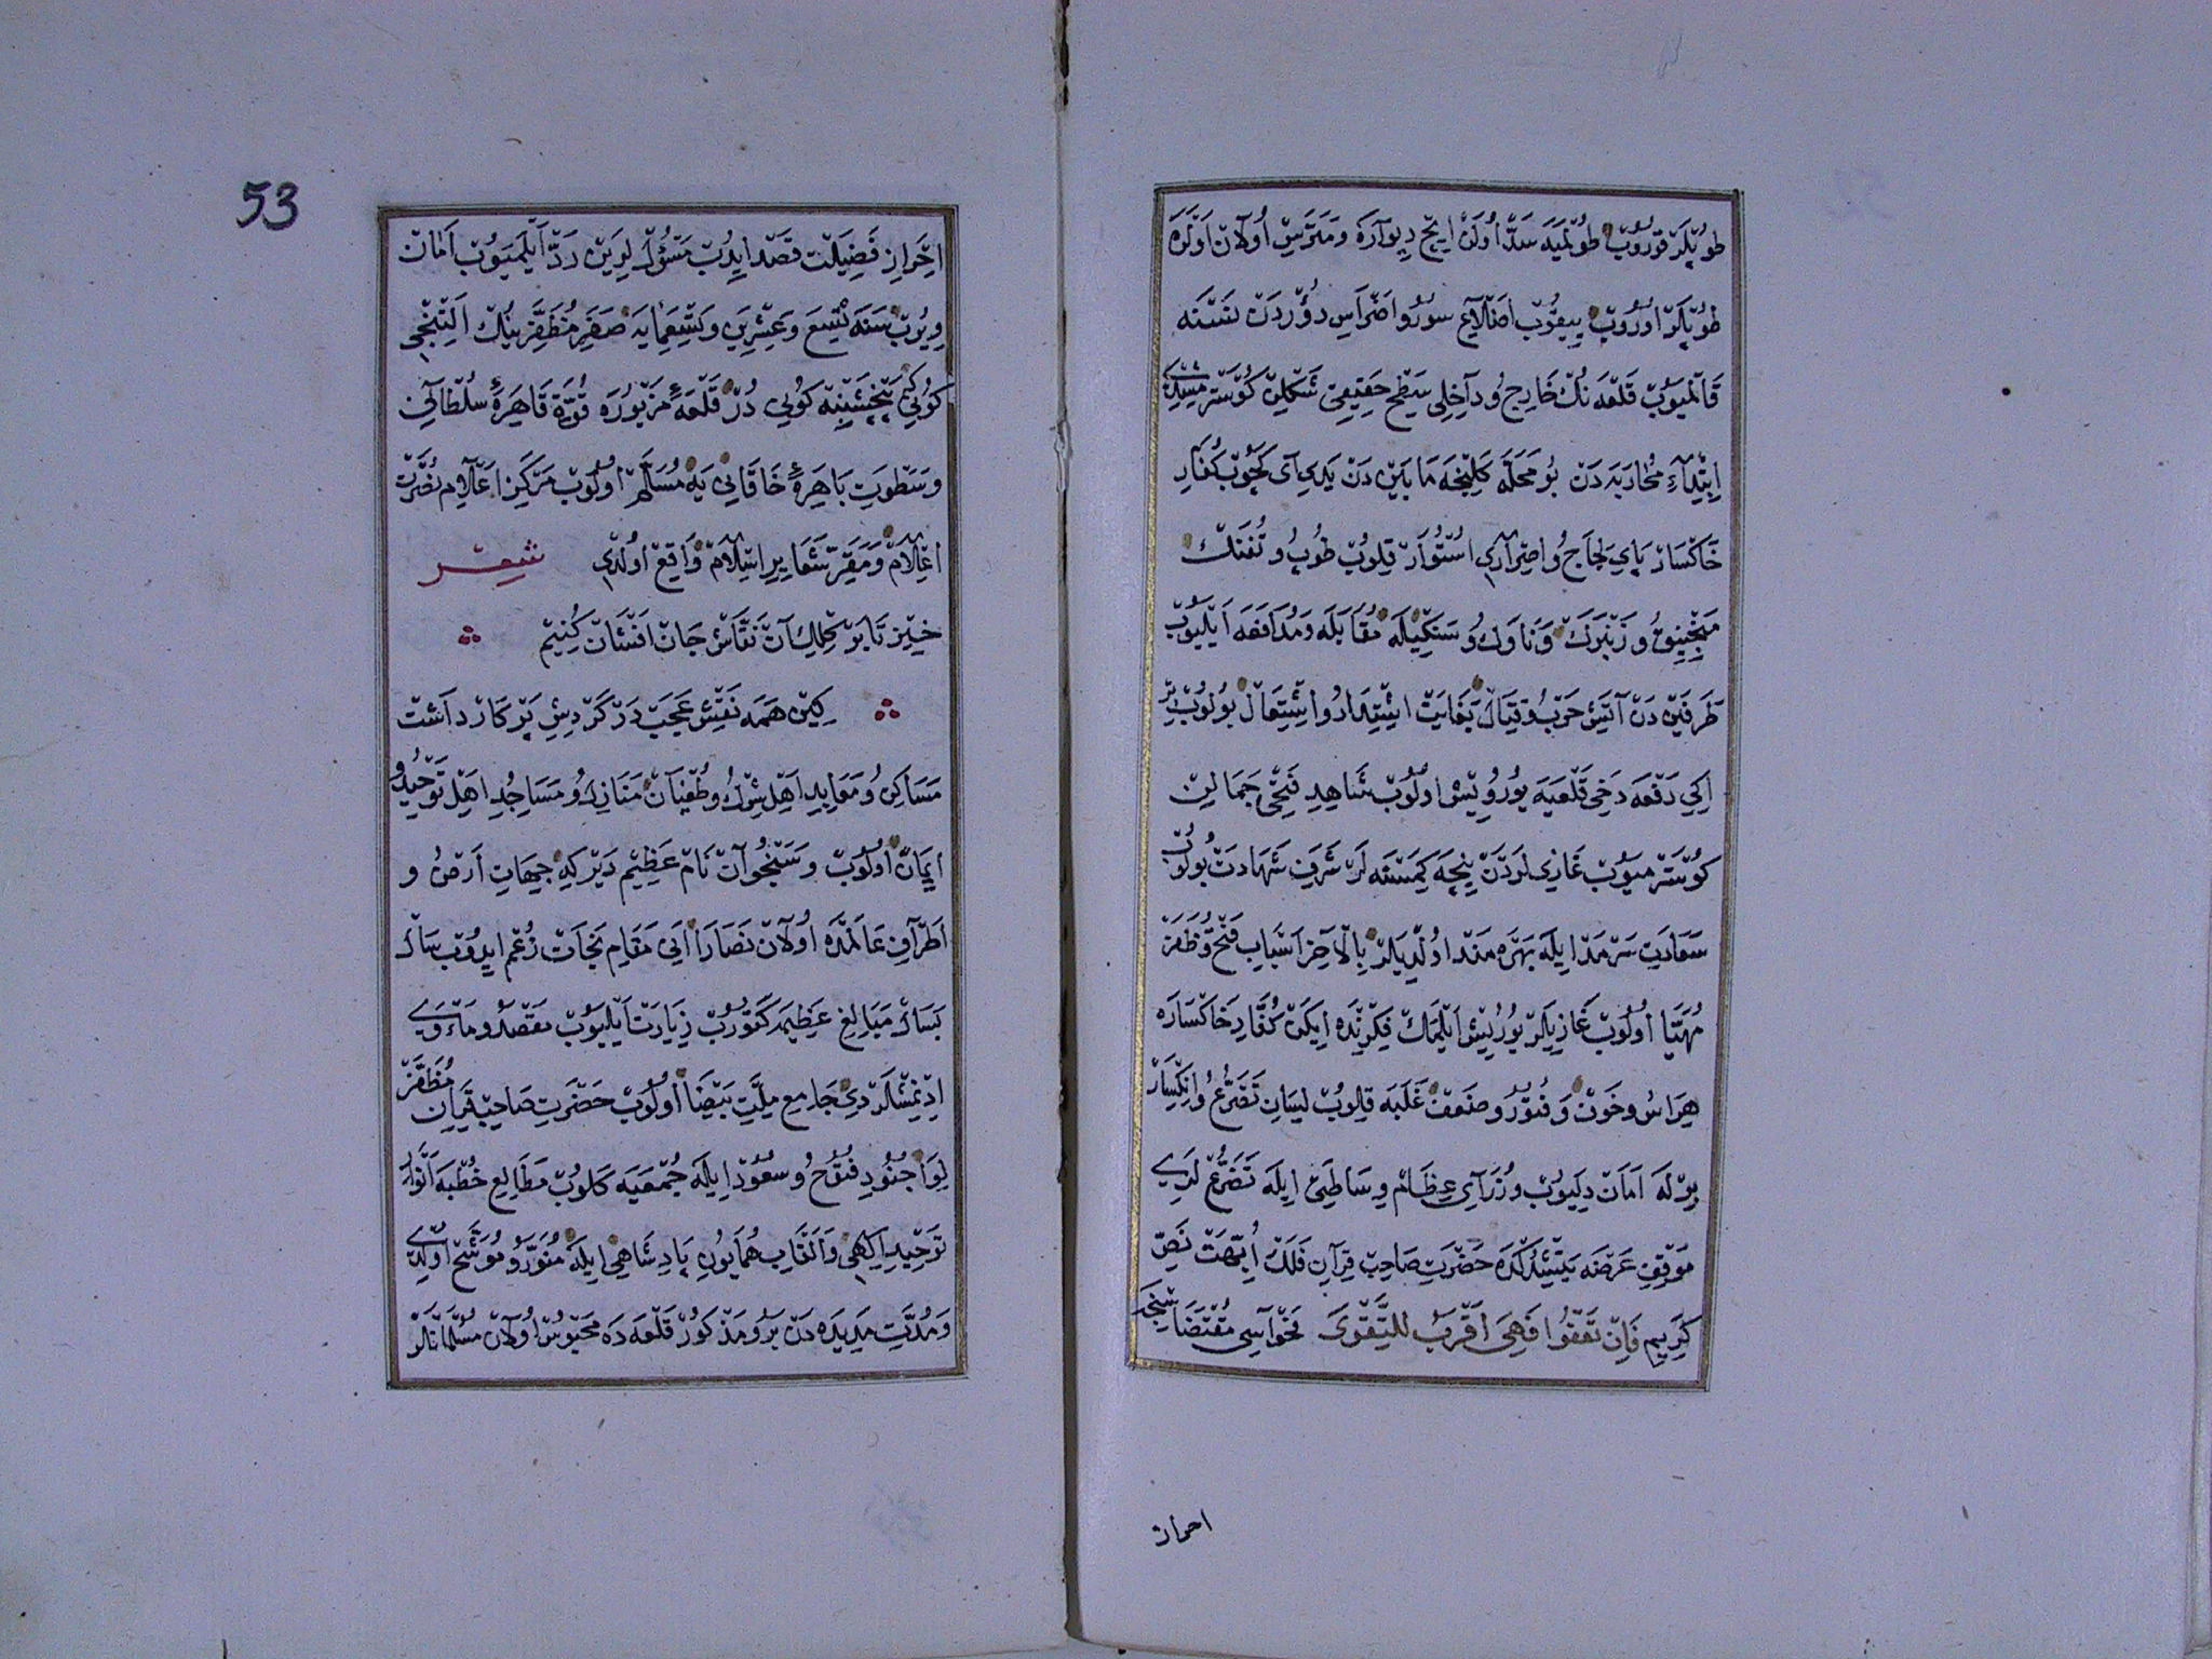 طوُپلَر قوُروُب طوُلميَه سَدّ اوُلَن اِيچ دِيوارَه وَمَتَرِس اوُلان اَوْلَرَه
طوُپلَر اوُروُب يِيقوُب اَضلاعِ سوُر و اَضراسِ دوُردَن نَسْنَه
قالميوُب قَلعَه نُك خارِج وُ داخِلى سَطحِ حَقيقِى شَكلِن كوُستَرمِشدِى
اِبتِداءِ مُحارَبَه دَن بوُ مَحَلَّه كَلِنجَه مابَين دَن يَدِى آى كَچوُب كُفّارِ
خاكسار پاىِ لَجاج وُ اِصرارِى اُستُوار قِلوُب طوُپ وُ تُفَنك
مَنجَنِيق وُ زَنبَرَك وَ ناوَك وُ سَنكيلَه مُقابَلَه وَ مُدافَعَه اَيليوُب
طَرَفَين دَن آتَشِ حَرب وُ قِتال بَغايَت اِشتِداد و اِشتِعال بوُلوُب بِر
اِكِى دَفعَه دَخى قَلعَيَه يوُروُيِش اوُلوُب شاهِدِ فَتحى جَمالِن
كوُستَرميوُب غازى لَردَن نِيچَه كِمسَنَه لَر شَرَفِ شَهادَت بوُلوُب
سَعادَتِ سَرمَد اِيلَه بَهرَه مَند اوُلدِيلَر بِالآخِر اَسبابِ فَتح وُ ظَفَر
مُهَيّا اوُلوُب غازِيلَر يوُرُيِش اَيلَمَك فِكرِندَه اِيكَن كُفّارِ خاكسارَه
هِراس وُ خَوف وَ فُتوُر وُ ضَعف غَلَبَه قِلوُب لِسانِ تَضَرُّع وُ اِنكِسار
بِرلَه اَمان دِليوُب وُزَراىِ عِظام وِساطَتى اِيلَه تَضَرُّع لَرِى
مَوقِفِ عَرضَه يَتِشدُكدَه حَضرَتِ صاحِب قِرانِ فَلَك اُبَّهَت نَصِّ
كَرِيم فَاِن تَعفُوا فَهِىَ اَقرَبُ لِلتَّقوَى فَحواسِى مُقتَضاسِنجَه
احراز
53
اِحرازِ فَضيلَت قَصد ايدُب مَسئوُل لَرِين رَدّ اَيلَميوُب اَمان
وِيرُب سَنَه تِسع وَ عِشرِين وَ تِسعَمايَه صَفَرِ مُظَفَّرِينُك اَلتِنجى
كوُنى پَنچشَنبِه كوُنى دُر قَلعَهٔ مَزبوُرَه قُوَّة قاهِرَهٔ سُلطانى
وَ سَطوَتِ باهِرَهٔ خاقانى يَه مُسَلَّم اوُلوُب مَركَزِ اَعلامِ نُصرَت
اِعلام وَ مَقَرِّ شَعايِرِ اِسلام واقِع اوُلدِى شعر
خيز تا بر كلك آن نقاش جان افشان كنيم
كين همه نقش عجب در گردش پركار داشت
مَساكِن وُ مَعابِدِ اَهلِ شِرك وُ طُغيان مَنازِل وُ مَساجِدِ اَهلِ تَوحيد وُ
اِيمان اوُلوُب وَ سَنجُوان نام عَظيم دَير كِه جِهاتِ اَرض وُ
اَطرافِ عالَمدَه اوُلان نَصارا اَنى مَقامِ نَجات زُعم ايدُوب سال
بَسال مَبالِغِ عَظيمَه كَتوُرُب زِيارَت اَيليوُب مَقصَد وُ مَأوَى
ادِنمِشلَردِى جامِعِ مِلَّتِ بَيضا اوُلوُب حَضرَتِ صاحِب قِرانِ مُظَفَّر
لِوا جُنوُدِ فُتوُح وُ سُعوُد اِيلَه جُمعَيَه كَلوُب مَطالِعِ خُطبَه اَنوارِ
تَوحيدِ اِلهى وَ اَلقابِ هُمايوُنِ پادِشاهى اِيلَه مُنَوَّر وُ مُوَشَّح اوُلدِى
وَ مُدَّتِ مَدِيدَه دَن بَرُو مَذكوُر قَلعَه دَه مَحبوُس اوُلان مُسلُمانلَر